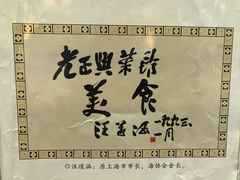 老正興菜館
美食
汪道涵 一九九三.
一月
◎汪道涵：原上海市市长，海协会会长。